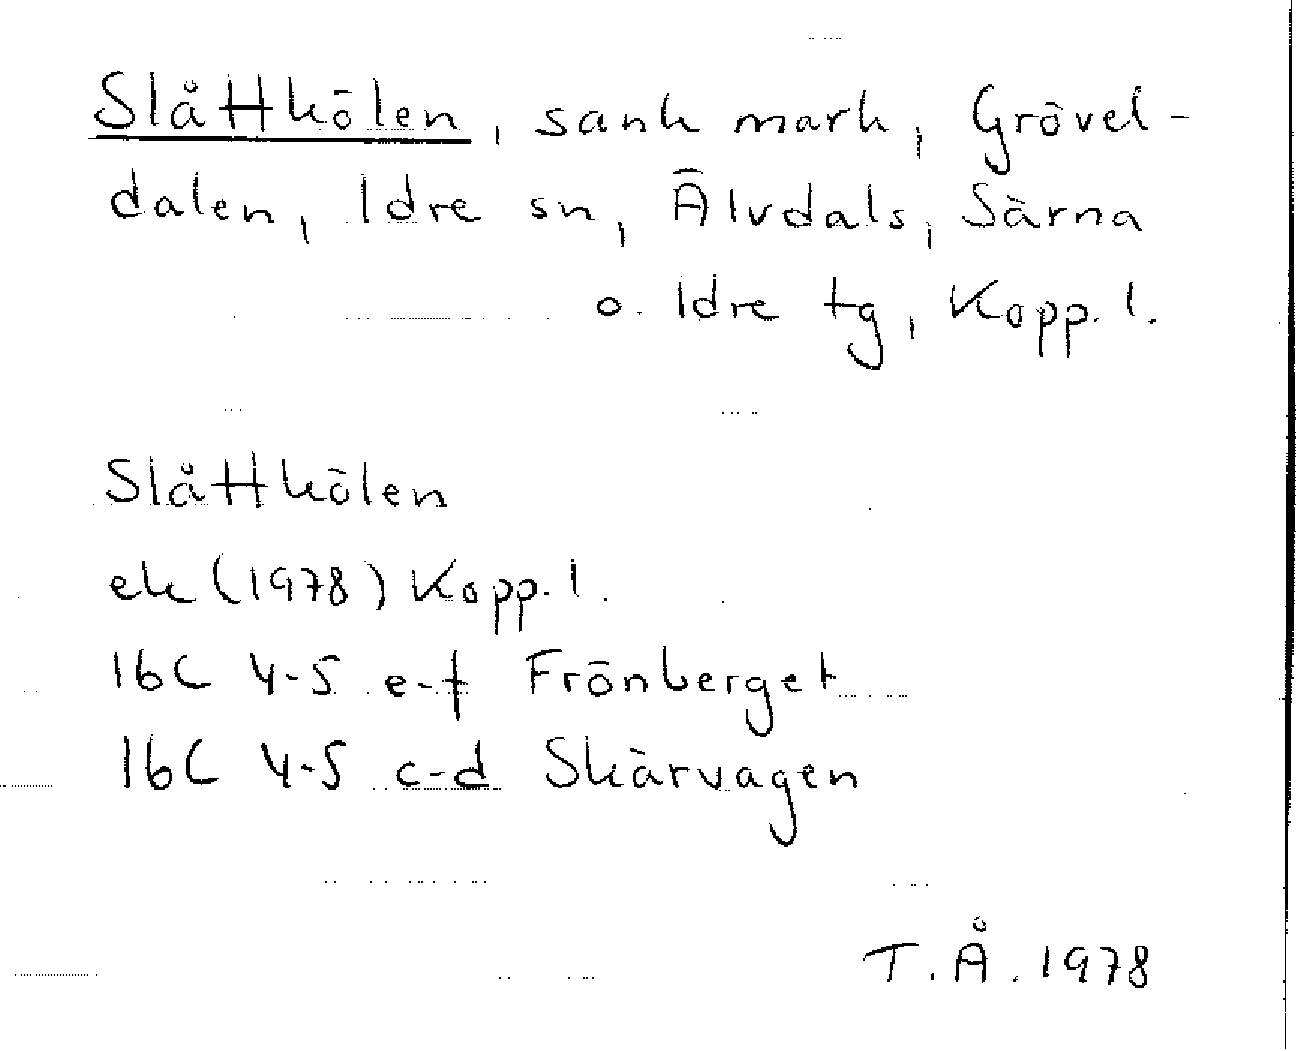 Slåttkölen, sank mark, Grövel-
dalen, Idre sn, Älvdals, Särna
o. Idre tg, Kopp. l.
Slåttkölen
ek (1978) Kopp. l.
16C 4-5 e-f Frönberget
16C 4-5 c-d Skärvagen
T. Å. 1978